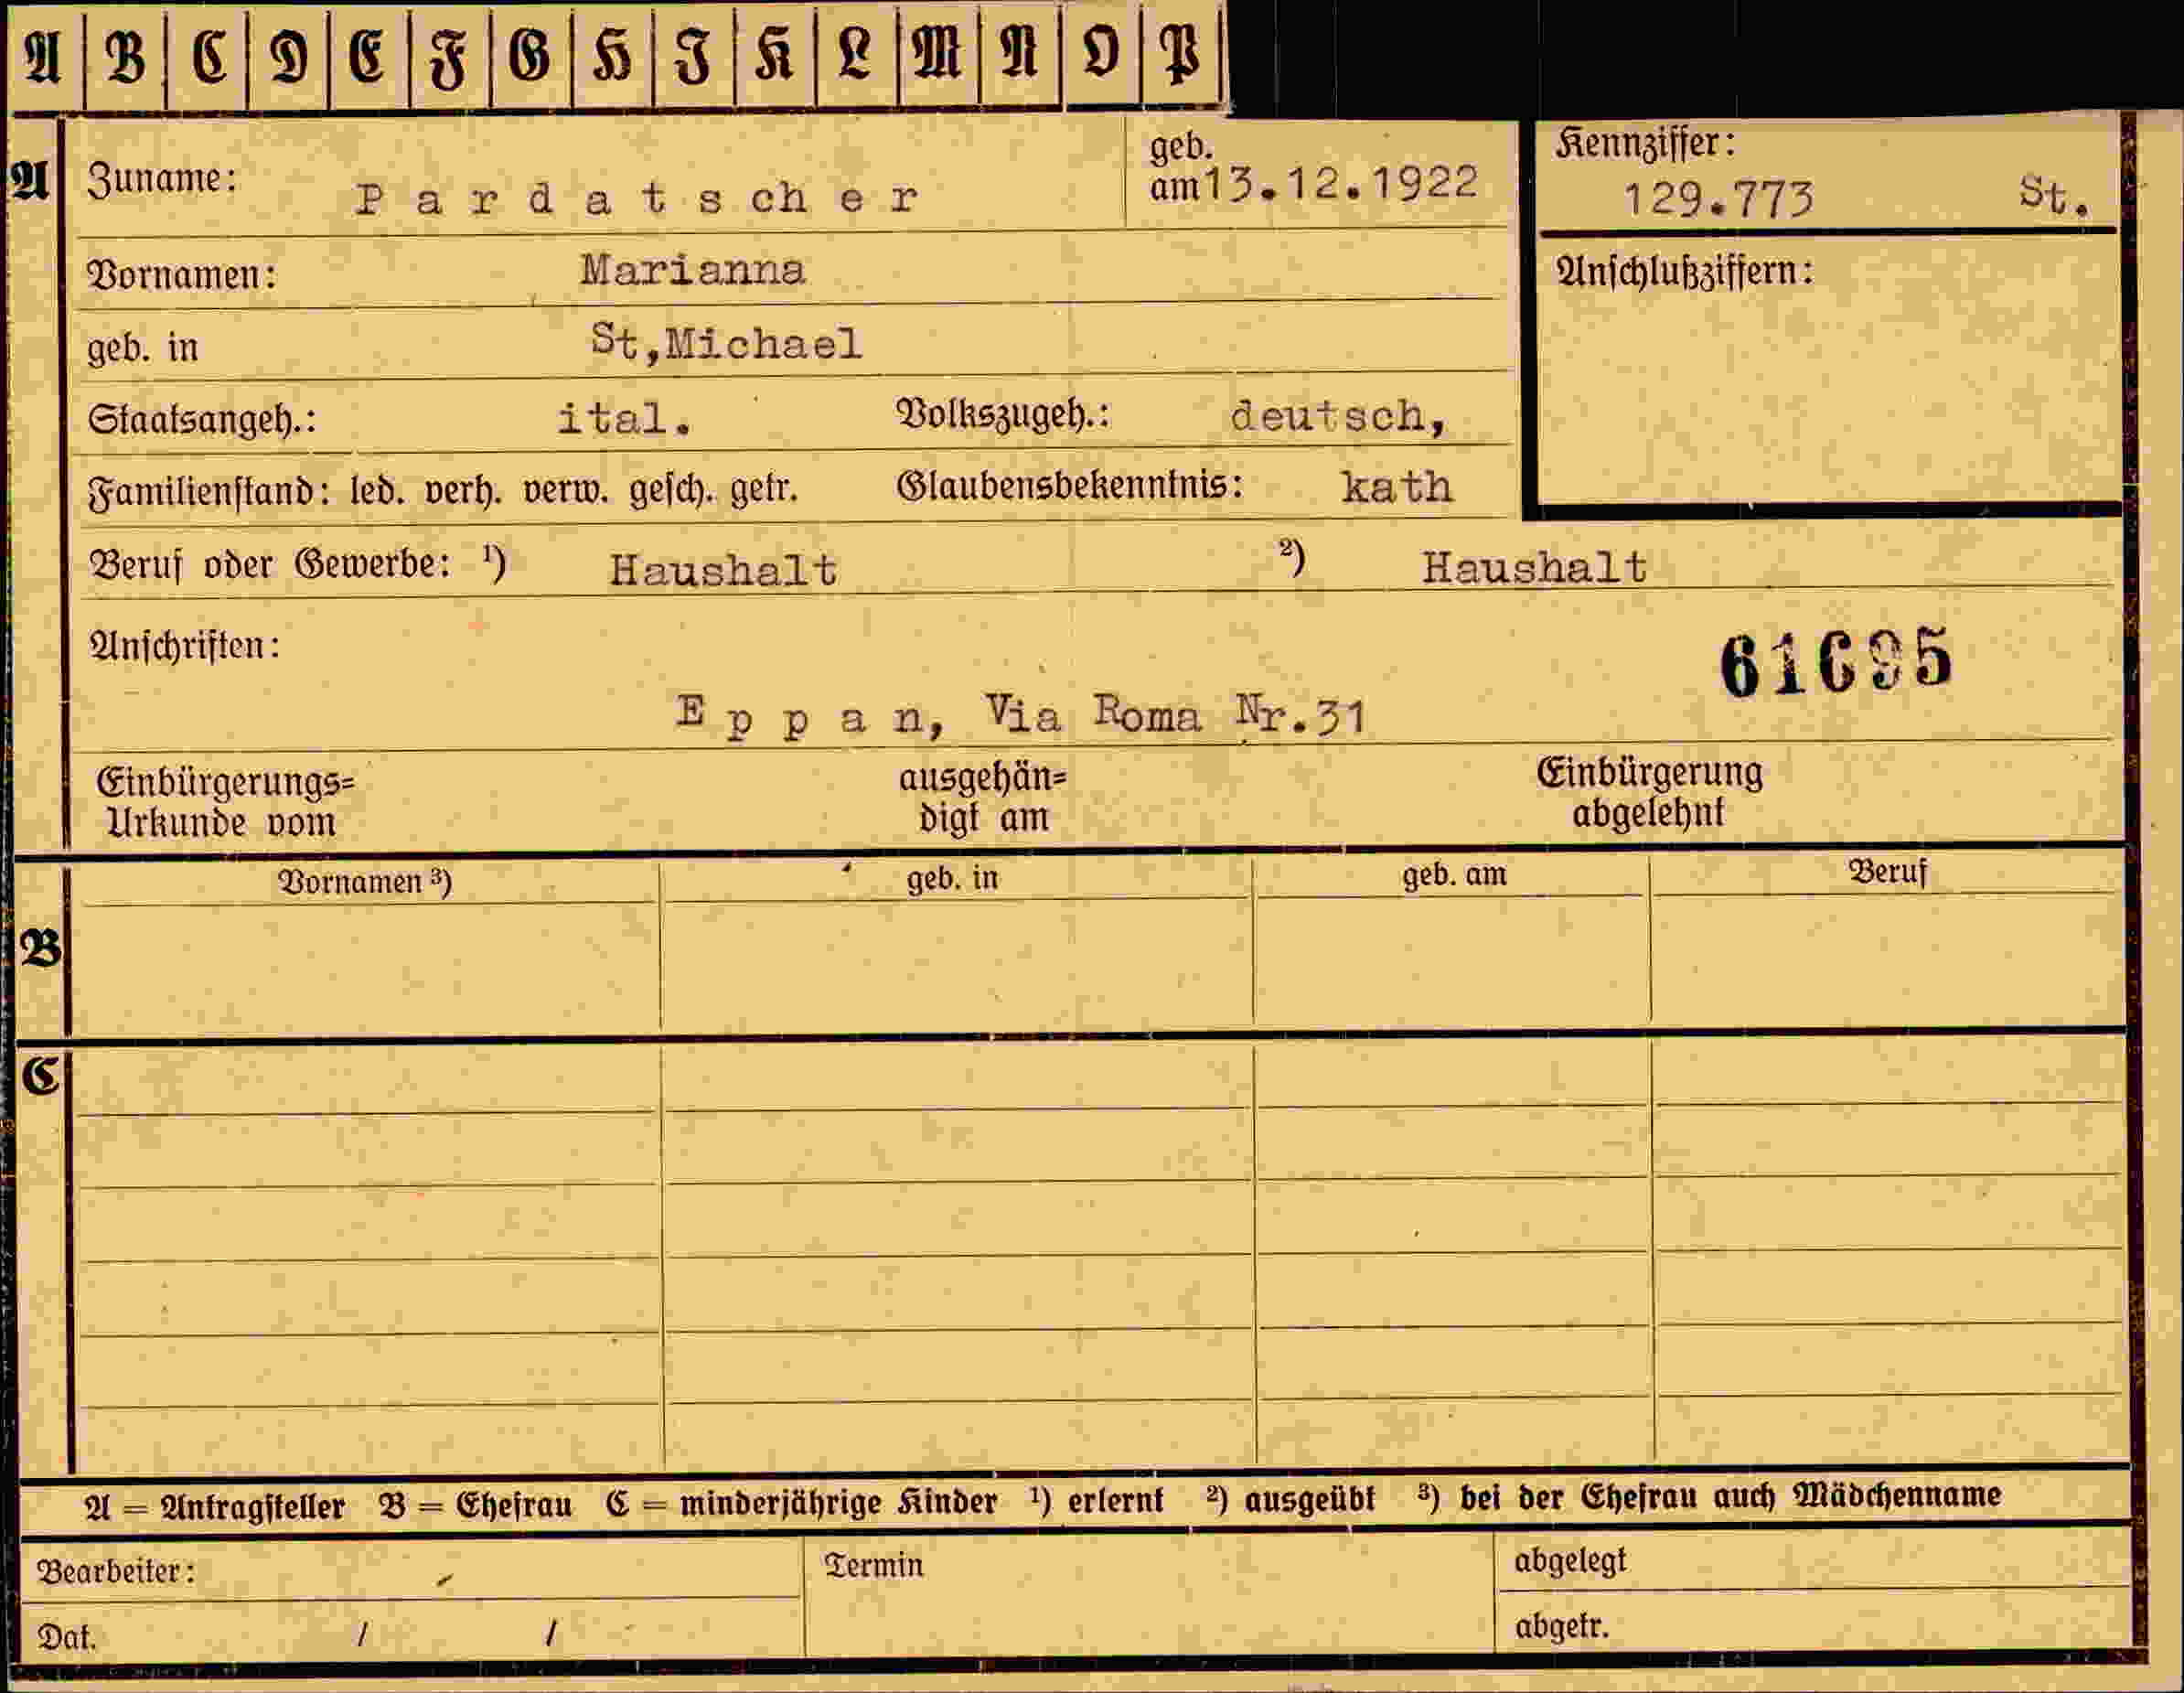 A B C D E F G H I K L M N O P
A Zuname: Pardatscher geb. am 13.12.1922 Kennziffer: 129.773 St.
Vornamen: Marianna Anschlußziffern:
geb. in St,Michael
Staatsangeh.: ital. Volkszugeh.: deutsch,
Familienstand: led. verh. verw. gesch. getr. Glaubensbekenntnis: kath
Beruf oder Gewerbe: ¹) Haushalt ²) Haushalt
Anschriften:
61695
Eppan, Via Roma Nr.31
Einbürgerungs= ausgehän= Einbürgerung
Urkunde vom digt am abgelehnt
Vornamen ³) geb. in geb. am Beruf
B
C
A = Antragsteller B = Ehefrau C = minderjährige Kinder ¹) erlernt ²) ausgeübt ³) bei der Ehefrau auch Mädchenname
Bearbeiter: Termin abgelegt
Dat. / / abgetr.